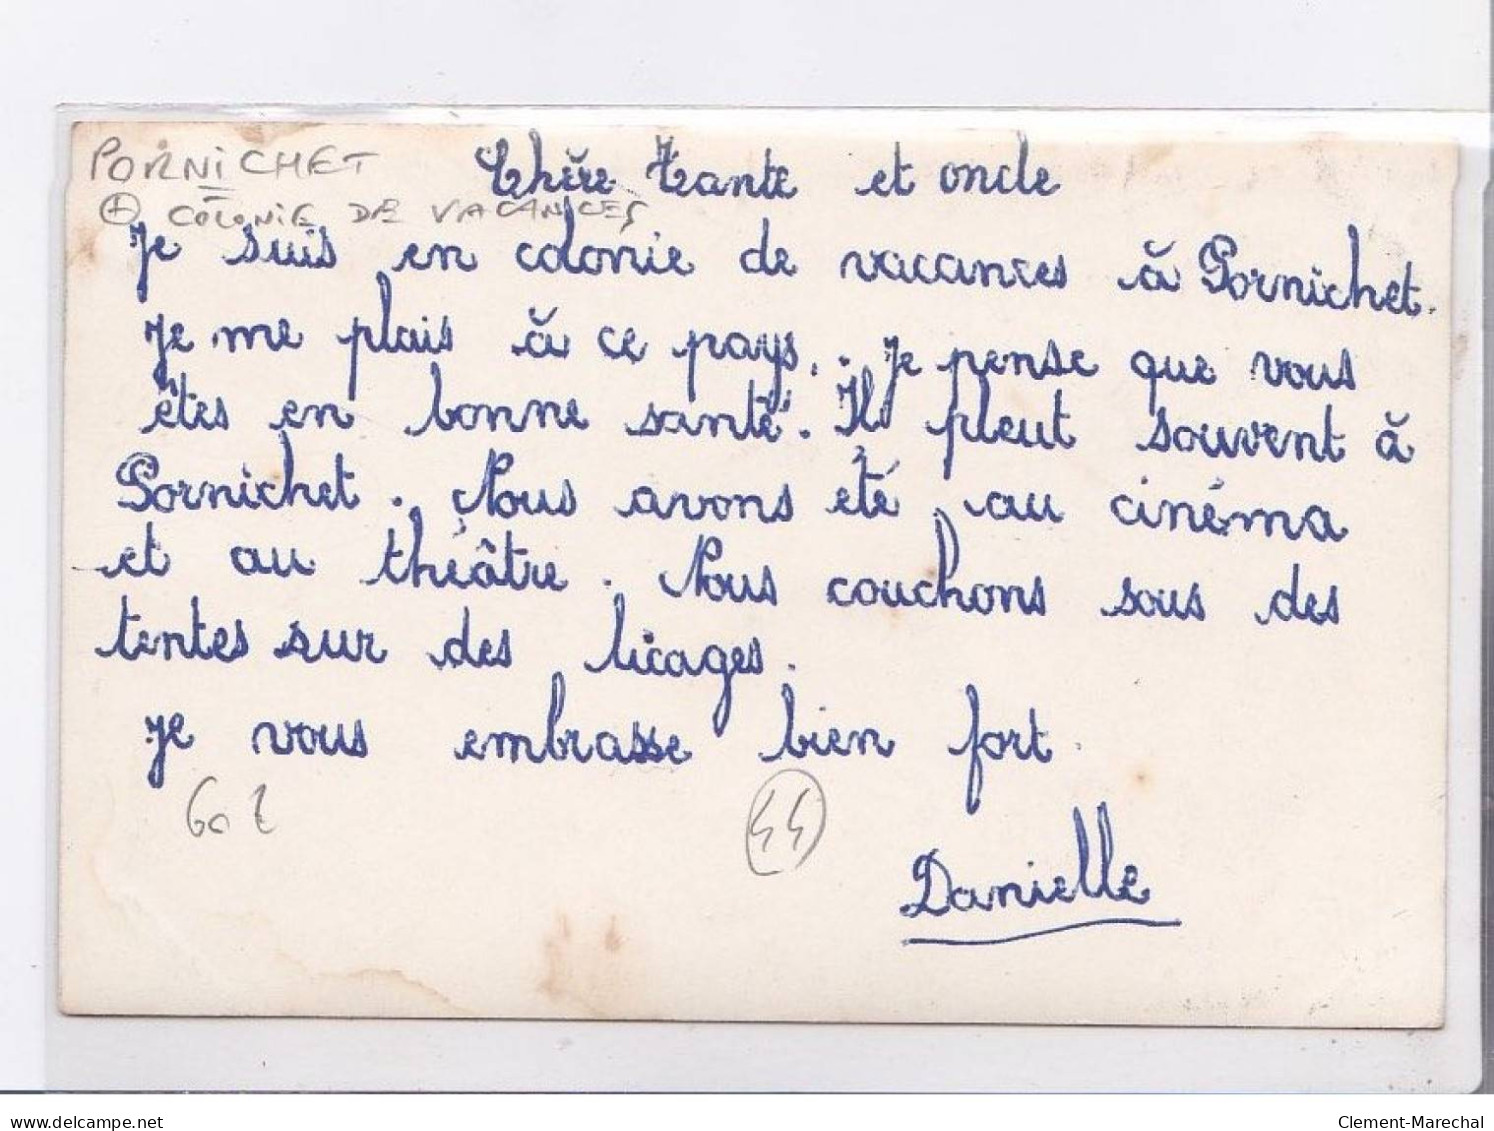 PORNICHET
Chère Tante et oncle
+ COLONIE DE VACANCES
Je suis en colonie de vacances à Pornichet.
Je me plais à ce pays.. Je pense que vous
êtes en bonne santé. Il pleut souvent à
Pornichet. Nous avons été au cinéma
et au théâtre. Nous couchons sous des
tentes sur des licages.
Je vous embrasse bien fort.
44
Danielle
delcampe.net
Clement-Marechal